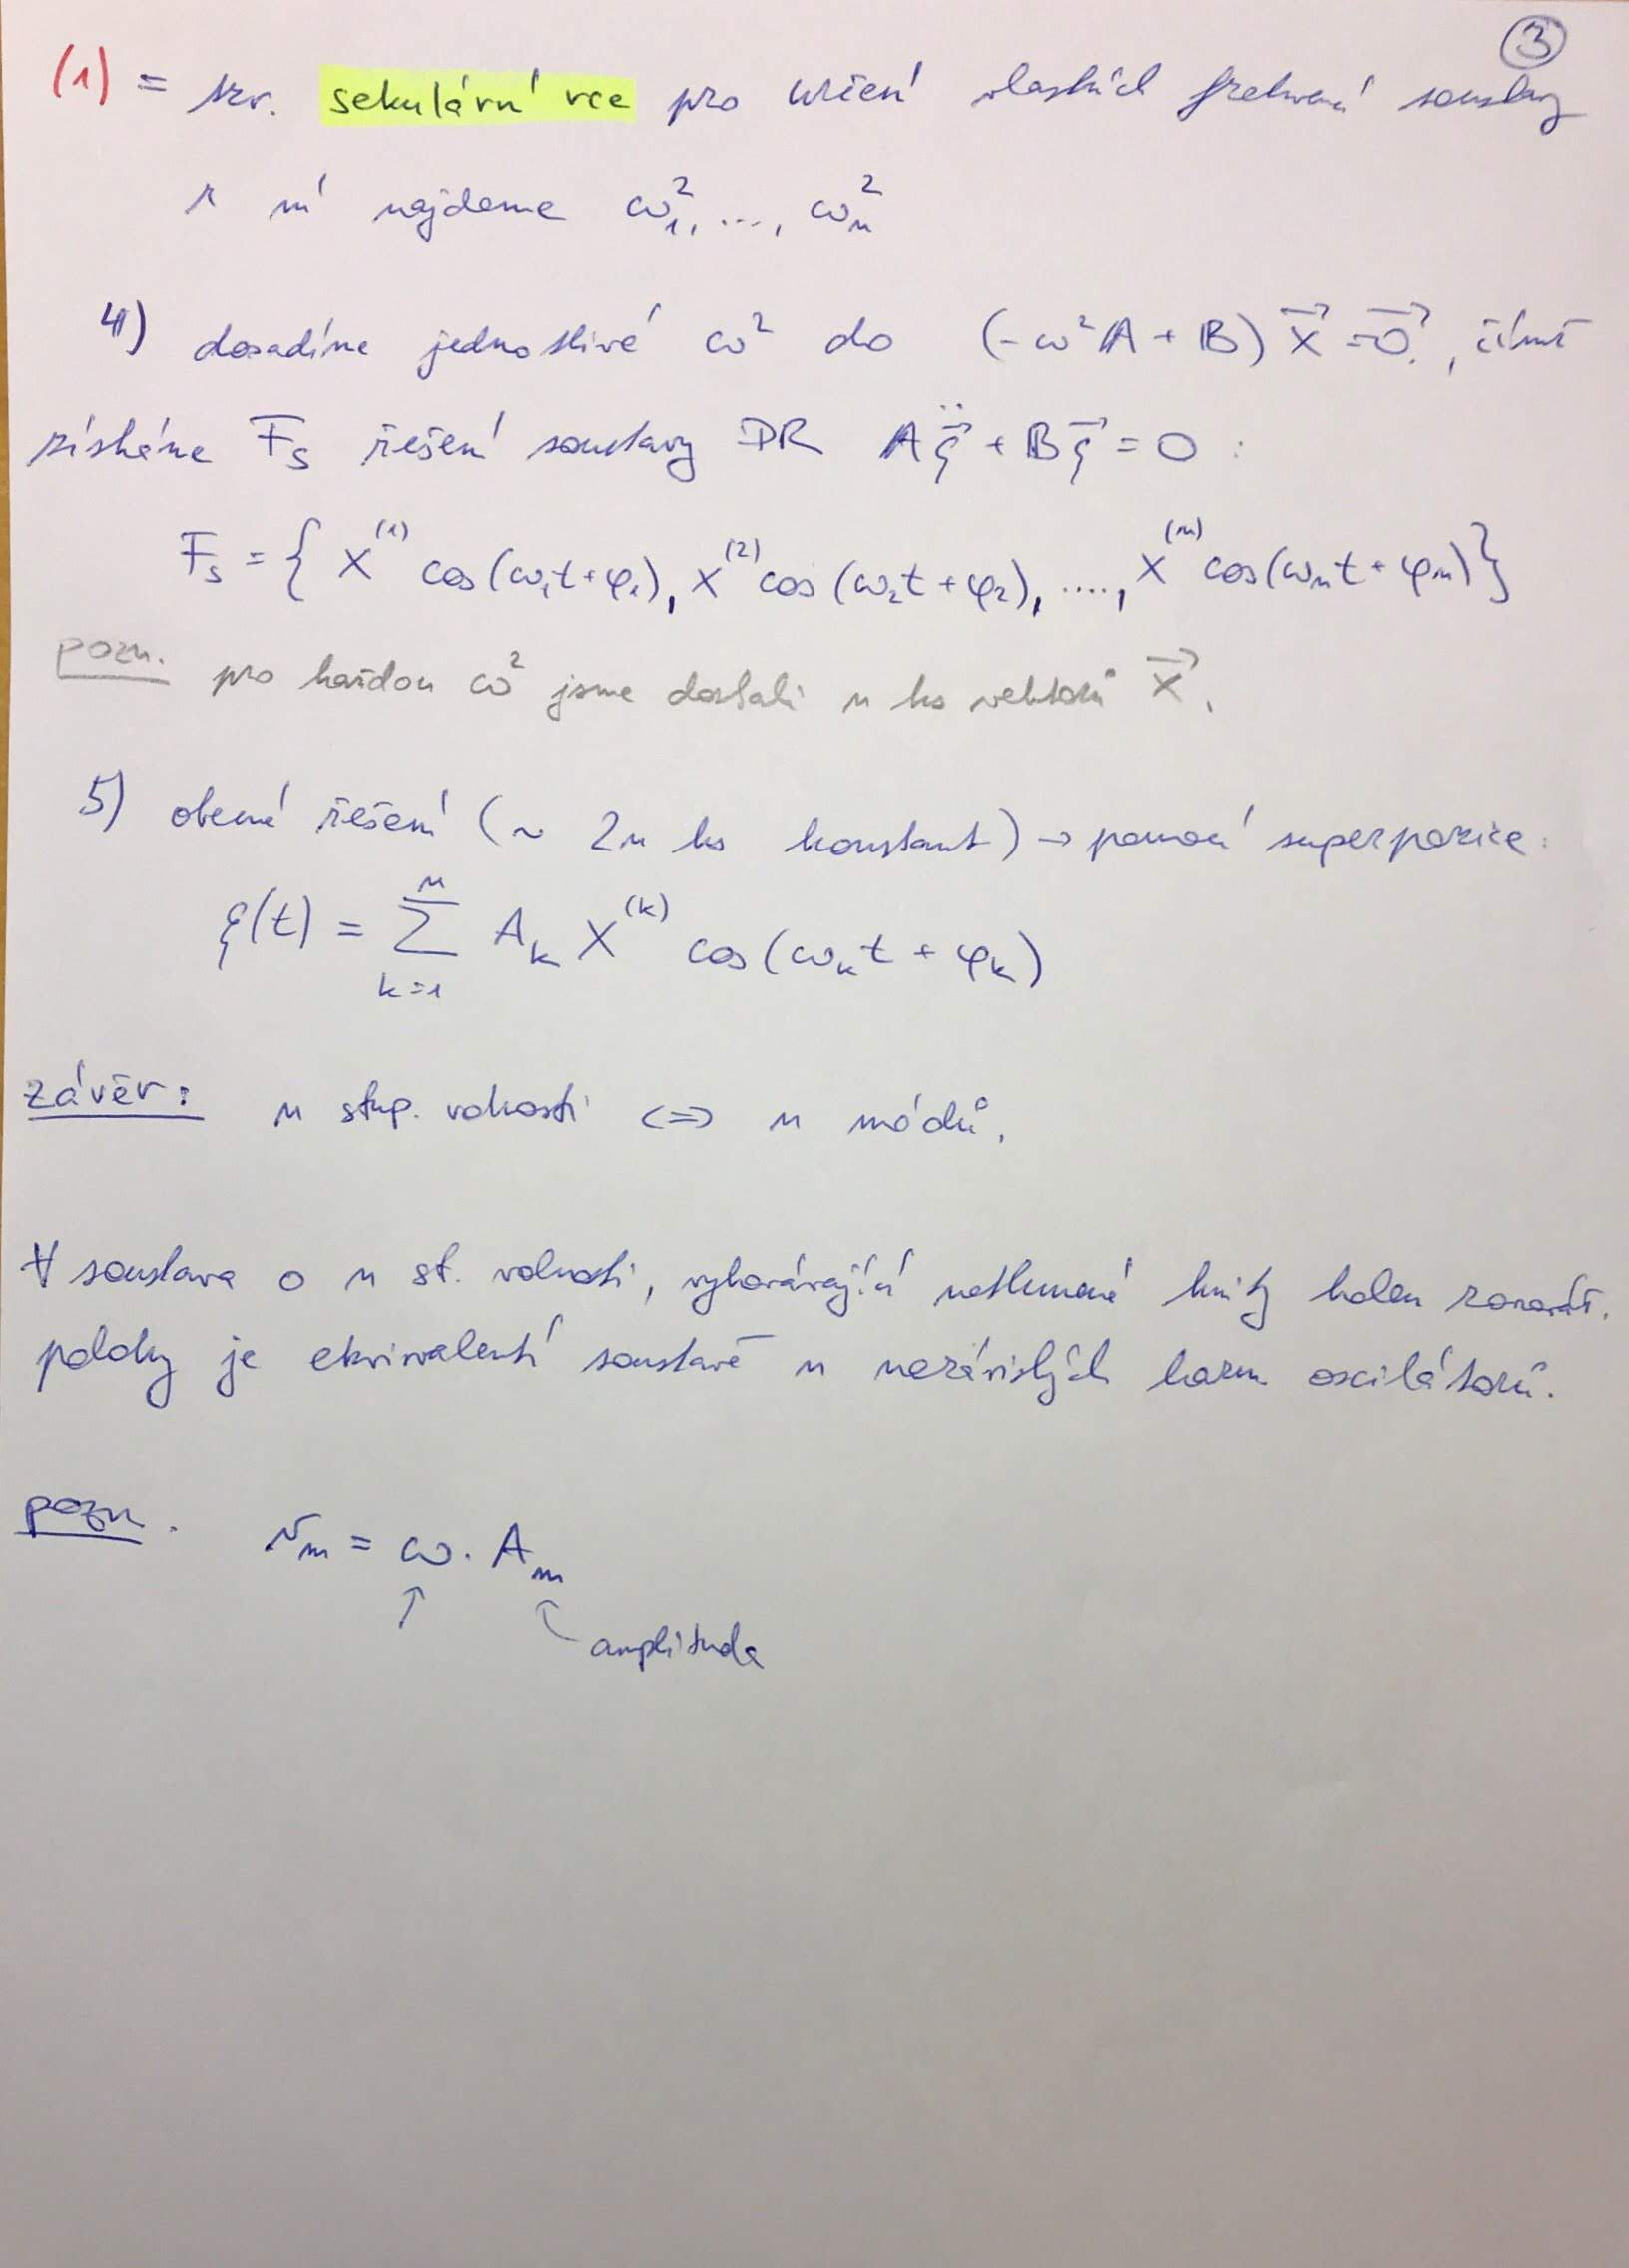 ③
(1) = tzv. sekulární rce pro určení vlastních frekvencí soustavy
z ní najdeme ω₁², ..., ωₙ²
4) dosadíme jednotlivé ω² do (-ω²𝔸 + 𝔹) X⃗ = 0⃗, čímž
získáme F_S řešení soustavy DR 𝔸ξ⃗̈ + 𝔹ξ⃗ = 0 :
F_S = { X⁽¹⁾ cos(ω₁t + φ₁), X⁽²⁾ cos(ω₂t + φ₂), ...., X⁽ⁿ⁾ cos(ωₙt + φₙ) }
pozn. pro každou ω² jsme dostali n ks vektorů X⃗.
5) obecné řešení (~ 2n ks konstant) → pomocí superpozice:
ξ(t) = ∑_{k=1}^{n} A_k X^{(k)} cos(ω_k t + φ_k)
závěr: n stup. volnosti <=> n módů.
∀ soustava o n st. volnosti, vykonávající netlumené kmity kolem rovnováž.
polohy je ekvivalentní soustavě n nezávislých harm oscilátorů.
pozn. v_m = ω · A_m
↑ amplituda